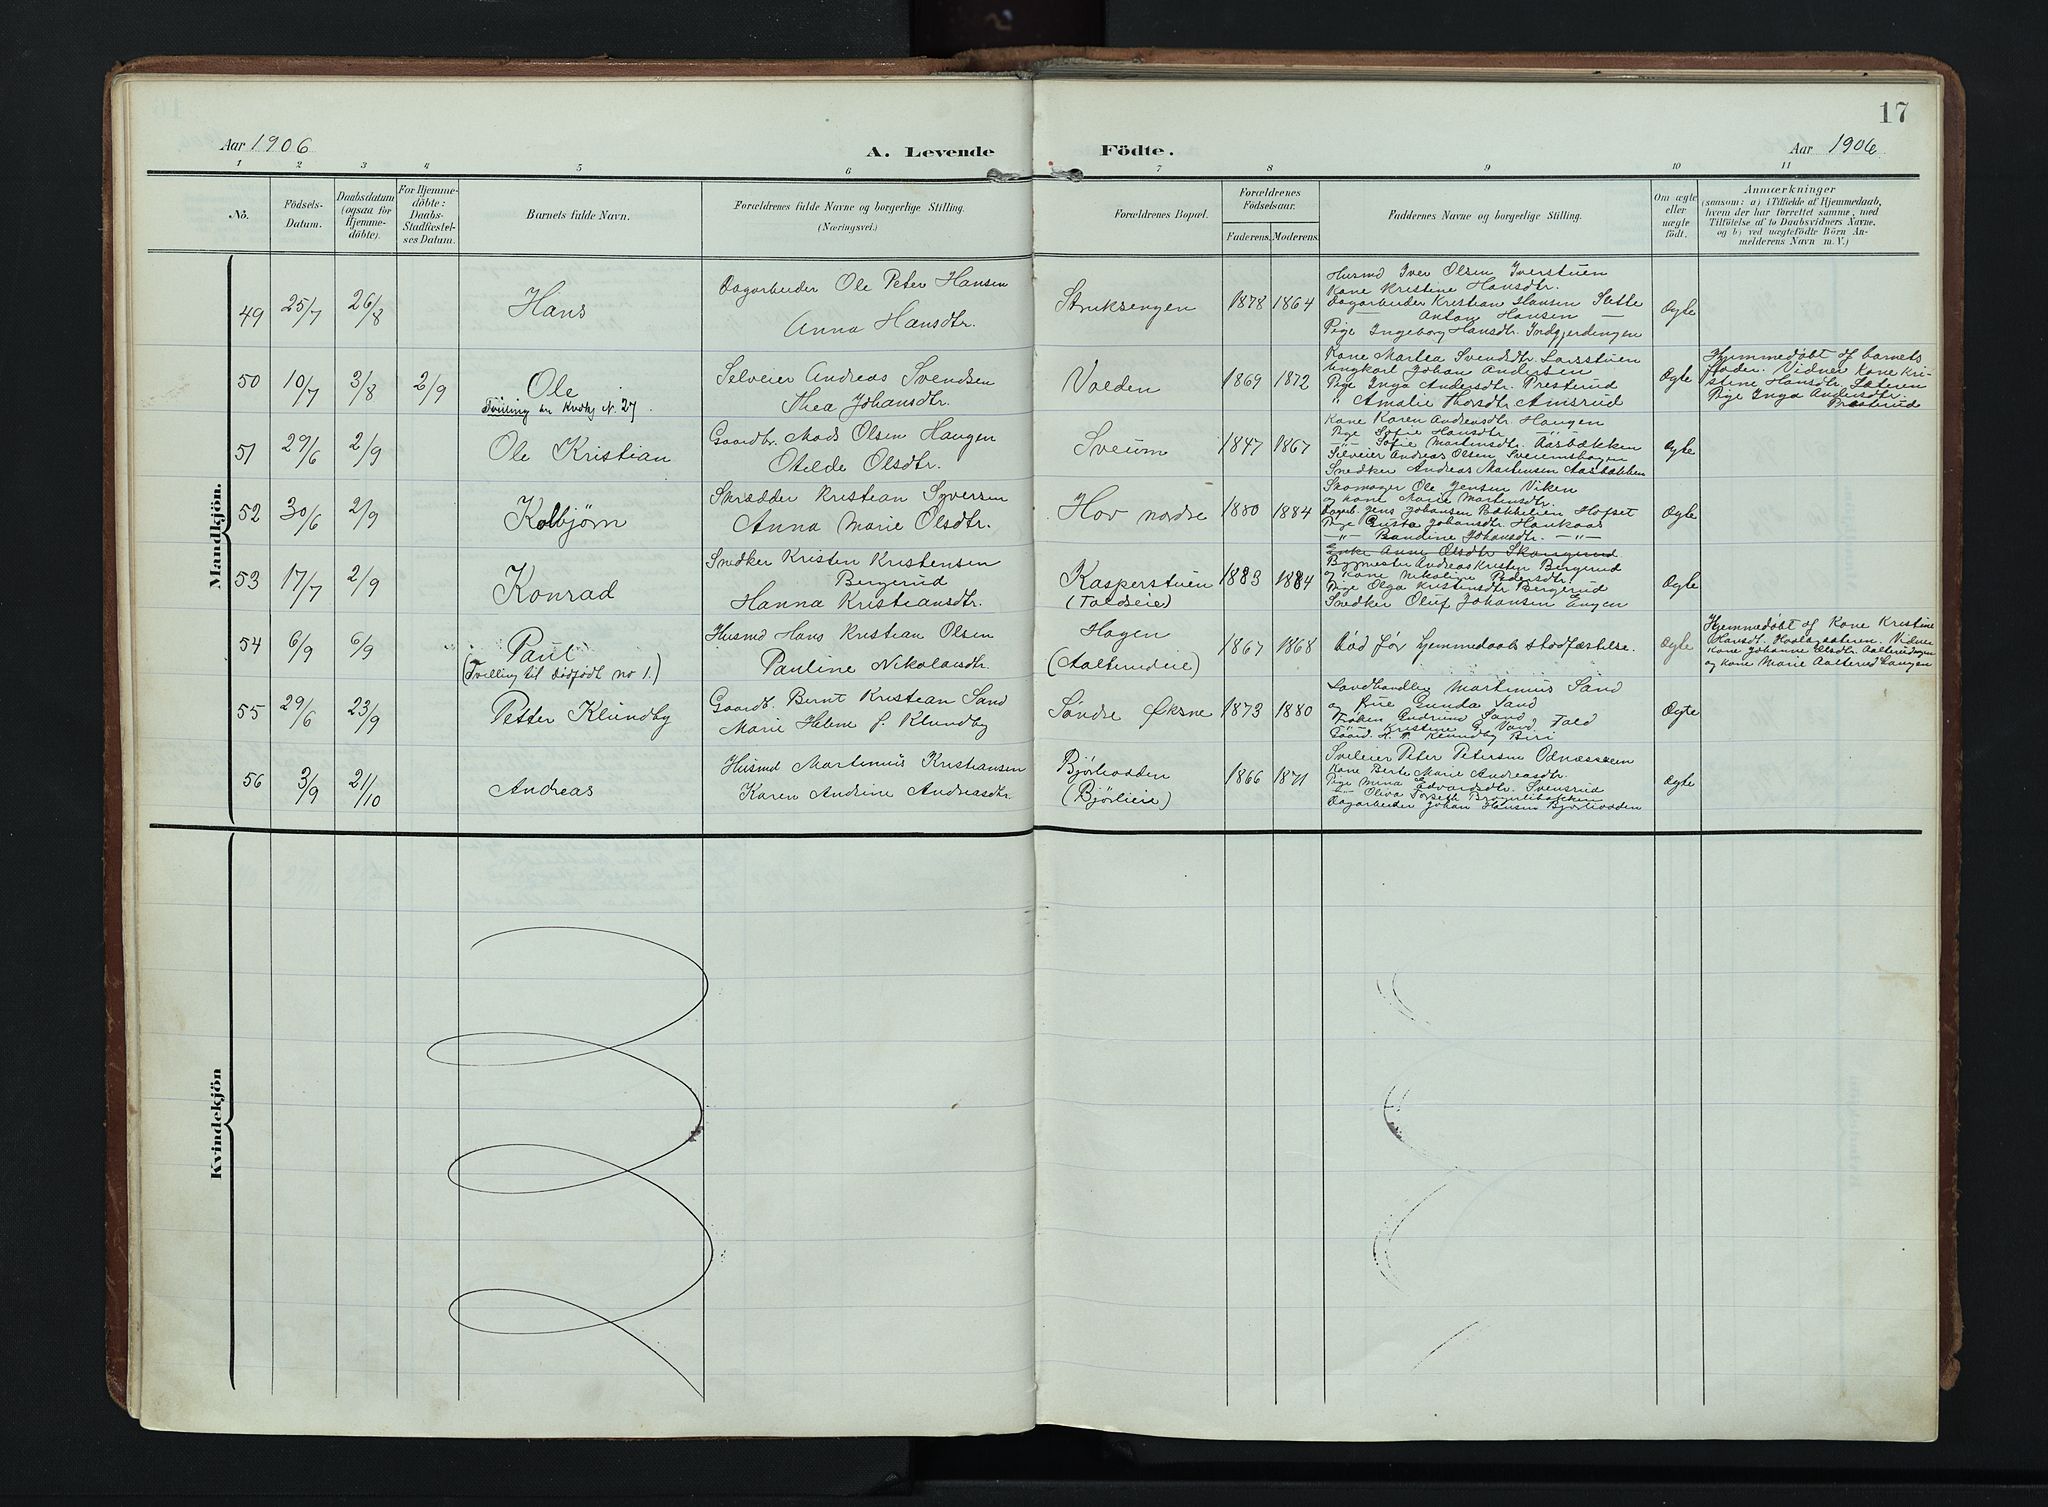 17
Aar 1906
A. Levende Födte.
Aar 1906
1 2 3 4 5 6 7. 8 9 10 11
No.
Födsels-
Datum.
Daabsdatum
(ogsaa for
Hjemme-
döbte).
For Hjemme-
döbte:
Daabs-
Stadfæstel-
ses Datum.
Barnets fulde Navn.
Forældrenes fulde Navne og borgerlige Stilling.
(Næringsvei.)
Forældrenes Bopæl.
Forældrenes
Födselsaar.
Faderens. Moderens.
Faddernes Navne og borgerlige Stilling.
Om ægte
eller
uægte
födt.
Anmærkninger
(saasom: a) i Tilfælde af Hjemmedaab,
hvem der har forrettet samme, med
Tilföielse af to Daabsvidners Navne.
og b) ved uægtefödte Börn An-
melderens Navn m. V.)
Mandkjön.
49 25/7 26/8
Hans
Dagarbeider Ole Peter Hansen
Anna Hansdtr.
Struksengen
1878 1864
Husmd Iver Olsen Iverstuen
Kone Kristine Hansdtr.
Dagarbeider Kristian Hansen Sætte
— Anton Hansen —
Pige Ingeborg Hansdtr. Indgjerdingen
Ægte
50 10/7 3/8 2/9
Ole
Tvilling m Kvdkj N. 27.
Selveier Andreas Svendsen
Thea Johansdtr.
Volden
1869 1872
Kone Martea Svendsdtr. Larsstuen
Ungkarl Johan Andersen
Pige Inga Andersdtr. Presterud
" Amalie Thorsdtr. Amsrud
Ægte
Hjemmedøbt af barnets
fader. Vidner Kone Kri-
stine Hansdtr. Sæteren
Pige Inga Andersdtr.
Presterud
51 29/6 2/9
Ole Kristian
Gaardbr. Mads Olsen Haugen
Otilde Olsdtr.
Sveum
1847 1867
Kone Karen Andreasdtr Haugen
Pige Sofie Hansdtr. —"—
—"— Sofie Martinsdtr. Aasbækken
Selveier Andreas Olsen Sveumshagen
Snedker Andreas Martinsen Aasbækken
Ægte
52 30/6 2/9
Kolbjørn
Skrædder Kristian Syversen
Anna Marie Olsdtr.
Hov nødre
1880 1884
Skomager Ole Jensen Viken
og Kone Marie Martinsdtr.
Dagarb. Jens Johansen Bakkelien Hofset
Pige Gusta Johansdtr. Haukaas
—"— Bandine Johansdtr. —"—
Ægte
53 17/7 2/9
Konrad
Snedker Kristen Kristensen
Bergerud
Hanna Kristiansdtr.
Kasperstuen
(Toldseie)
1883 1884
Enke Anne Olsdtr Skarsrud
Bygmester Andreas Kristen Bergerud
og Kone Nikoline Pedersdtr.
Pige Olga Kristensdtr Bergerud
Snedker Oluf Johansen Engen
Ægte
54 6/9 6/9
Paul
(Tvilling til dødfødt no 1.)
Husmd Hans Kristian Olsen
Pauline Nikolaisdtr.
Hagen
(Aalterudeie)
1867 1868
Død før hjemmedaabs stadfæstelse.
Ægte
Hjemmedøbt af Kone Kristine
Hansdt. Vidner
Kone Johanne Olsdtr. Aalterudengen
og Kone Marie Aalterud Haugen
55 29/6 23/9
Petter Klundby
Gaardb. Bernt Kristian Sand
Marie Helene f. Klundby
Søndre Øksne
1873 1880
Landhandler Martinius Sand
og Frue Gunda Sand
Frøken Gudrund Sand
" Kristine G. Vand. Told
Gaard. H. P. Klundby Biri
Ægte
56 3/9 21/10
Andreas
Husmd Martinius Kristiansen
Karen Andrine Andreasdtr.
Bjørliodden
(Bjørlieie)
1866 1871
Sveiler Peter Petersen Odnæssveen
Kone Berte Marie Andreasdtr.
Pige Mina Edvardsdtr. Svensrud
—"— Oliva Torseth
Dagarbeider Johan Hansen Bjørliodden
Ægte
Kvindekjön